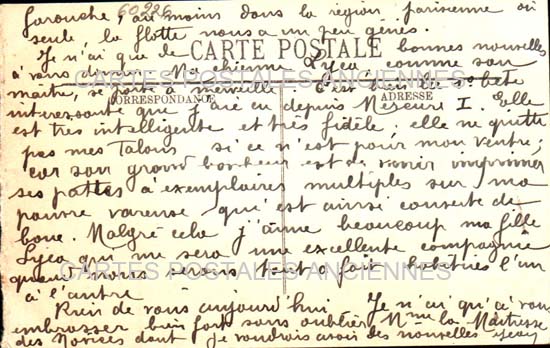 farouche, au moins dans la région parisienne où
60226
seule, la flotte nous a un peu gênés.
Je n'ai que de bonnes nouvelles
CARTE POSTALE
à vous Ma chienne Lyca comme son
CARTES POSTALES ANCIENNES
maître, se porte à merveille C'est bien la bête
CORRESPONDANCE
ADRESSE
intéressante que j'aie eu depuis Mercure I. Elle
est très intelligente et très fidèle, elle ne quitte
pas mes talons si ce n'est pour mon ventre,
car son grand bonheur est de venir imprimer
ses pattes à exemplaires multiples sur ma
pauvre vareuse qui est ainsi couverte de
boue. Malgré cela j'aime beaucoup ma fille
Lyca qui me sera une excellente compagnie
quand nous serons tout à fait habitués l'un
CARTES POSTALES ANCIENNES
à l'autre
Rien de vous aujourd'hui. Je n'ai qu'à vous
embrasser bien fort sans oublier Mme la Maîtresse
des Novices dont je voudrais avoir des nouvelles